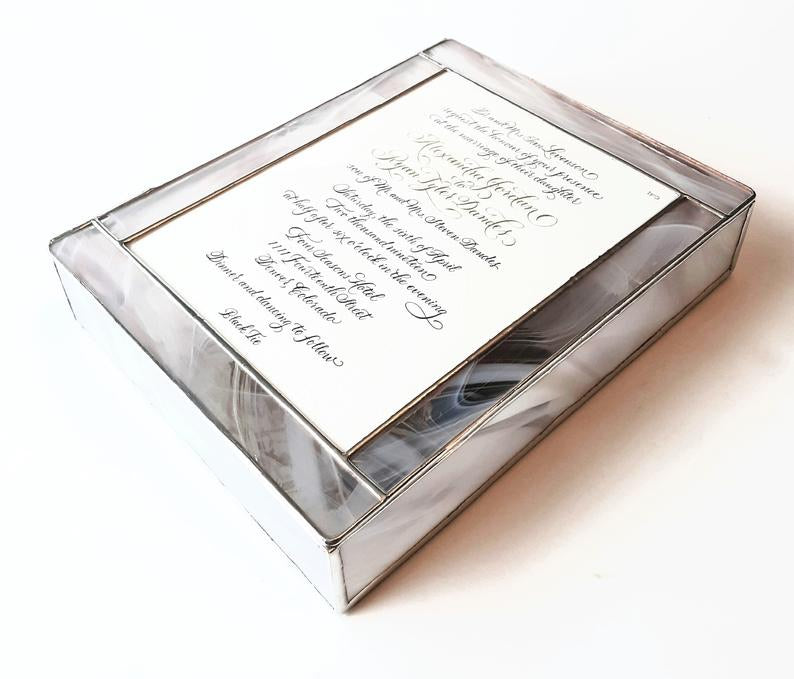 Dr. and Mrs. Ian Levenson
request the honour of your presence
at the marriage of their daughter
Alexandra Jordan
to
Ryan Tyler Dandes
son of Mr. and Mrs. Steven Dandes
Saturday, the sixth of April
Two thousand nineteen
at half after six o'clock in the evening
Four Seasons Hotel
1111 Fourteenth Street
Denver, Colorado
Dinner and dancing to follow
Black Tie